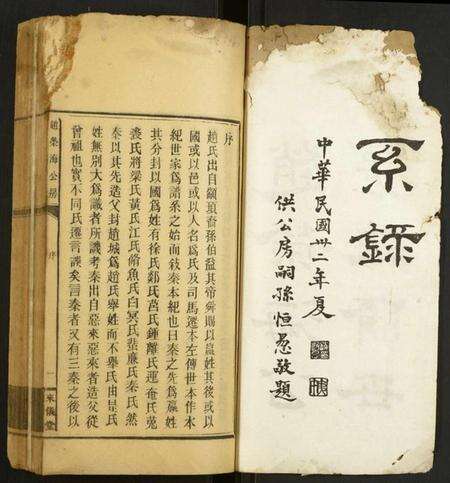 系錄
中華民國卅二年夏
供公房嗣孫恒惫敬題
序
趙氏出自顓頊裔孫伯益其帝舜賜以嬴姓其後或以
國或以邑或以人名爲氏及司馬遷本左傳世本作本
紀世家爲譜系之始而敍秦本紀也曰秦之先爲嬴姓
其分封以國爲姓有徐氏郯氏莒氏鍾離氏運奄氏菟
裘氏將梁氏黃氏江氏脩魚氏白冥氏蜚廉氏秦氏然
秦以其先造父封趙城爲趙氏舉姓而不舉氏由是氏
姓無別大爲識者所譏考秦出自惡來惡來者造父從
曾祖也實不同氏遷言誤矣言秦者又有三秦之後以
趙榮海公房
序
一
來儀堂